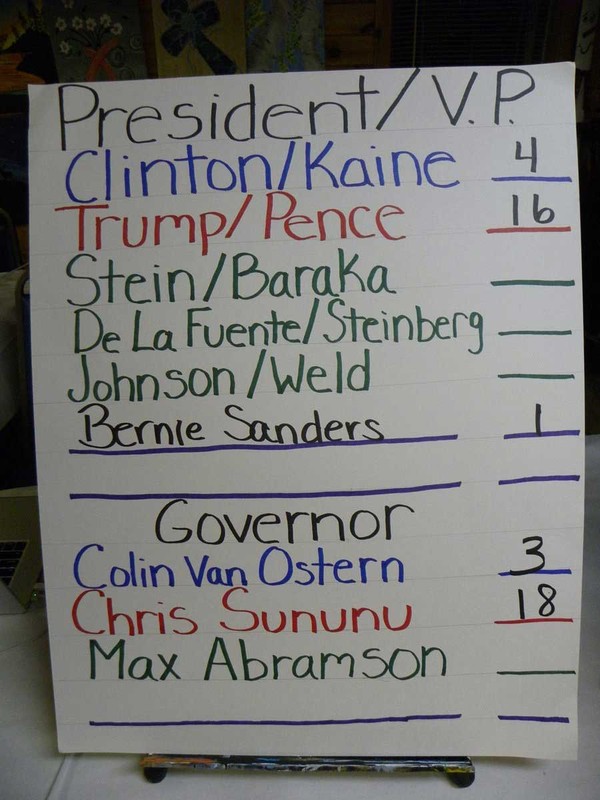 President/V.P.
Clinton/Kaine 4
Trump/Pence 16
Stein/Baraka
De La Fuente/Steinberg
Johnson/Weld
Bernie Sanders 1
Governor
Colin Van Ostern 3
Chris Sununu 18
Max Abramson